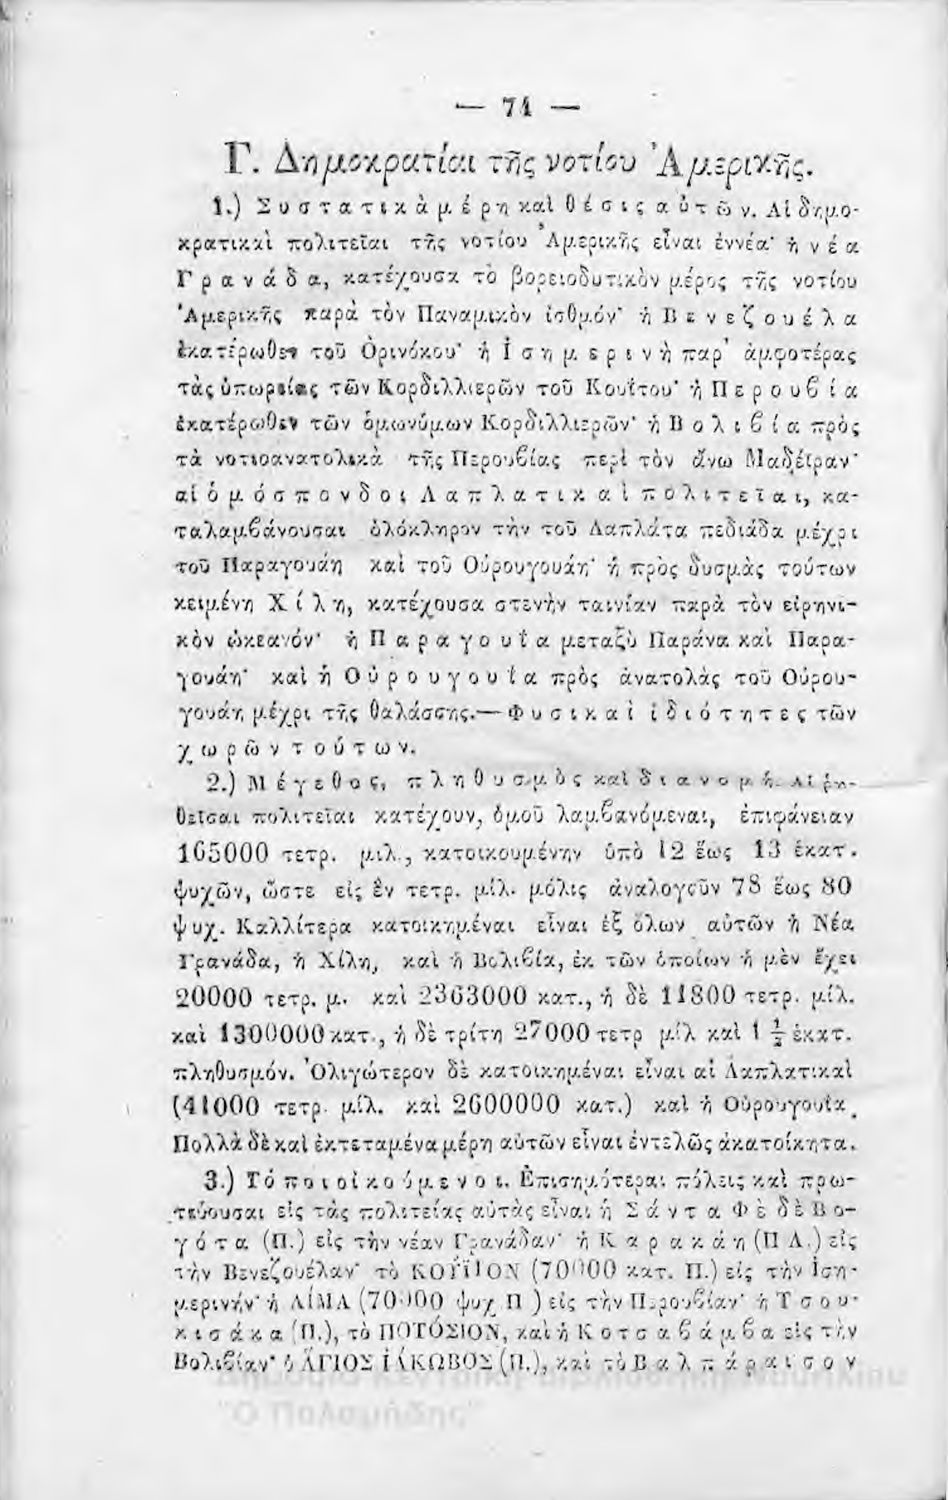 — 71 —
Γ. Δημοκρατίαι τῆς νοτίου Ἀμερικῆς.
1.) Συστατικὰ μέρη καὶ θέσις αὐτῶν. Αἱ δημο-
κρατικαὶ πολιτεῖαι τῆς νοτίου Ἀμερικῆς εἶναι ἐννέα· ἡ νέα
Γρανάδα, κατέχουσα τὸ βορειοδυτικὸν μέρος τῆς νοτίου
Ἀμερικῆς παρὰ τὸν Παναμικὸν ἰσθμόν· ἡ Βενεζουέλα
ἑκατέρωθεν τοῦ Ὀρινόκου· ἡ Ἰσημερινὴ παρ' ἀμφοτέρας
τὰς ὑπωρείας τῶν Κορδιλλιερῶν τοῦ Κουΐτου· ἡ Περουβία
ἑκατέρωθεν τῶν ὁμωνύμων Κορδιλλιερῶν· ἡ Βολιβία πρὸς
τὰ νοτιοανατολικὰ τῆς Περουβίας περὶ τὸν ἄνω Μαδέϊραν·
αἱ ὁμόσπονδοι Λαπλατικαὶ πολιτεῖαι, κα-
ταλαμβάνουσαι ὁλόκληρον τὴν τοῦ Λαπλάτα πεδιάδα μέχρι
τοῦ Παραγουάη καὶ τοῦ Οὐρουγουάη· ἡ πρὸς δυσμὰς τούτων
κειμένη Χίλη, κατέχουσα στενὴν ταινίαν παρὰ τὸν εἰρηνι-
κὸν ὠκεανόν· ἡ Παραγουΐα μεταξὺ Παράνα καὶ Παρα-
γουάη· καὶ ἡ Οὐρουγουΐα πρὸς ἀνατολὰς τοῦ Οὐρου-
γουάη μέχρι τῆς θαλάσσης.— Φυσικαὶ ἰδιότητες τῶν
χωρῶν τούτων.
2.) Μέγεθος, πληθυσμὸς καὶ διανομή. Αἱ ῥη-
θεῖσαι πολιτεῖαι κατέχουν, ὁμοῦ λαμβανόμεναι, ἐπιφάνειαν
165000 τετρ. μιλ., κατοικουμένην ὑπὸ 12 ἕως 13 ἑκατ.
ψυχῶν, ὥστε εἰς ἓν τετρ. μίλ. μόλις ἀναλογοῦν 78 ἕως 80
ψυχ. Καλλίτερα κατοικημέναι εἶναι ἐξ ὅλων αὐτῶν ἡ Νέα
Γρανάδα, ἡ Χίλη, καὶ ἡ Βολιβία, ἐκ τῶν ὁποίων ἡ μὲν ἔχει
20000 τετρ. μ. καὶ 2363000 κατ., ἡ δὲ 11800 τετρ. μίλ.
καὶ 1300000 κατ., ἡ δὲ τρίτη 27000 τετρ μίλ καὶ 1 ½ ἑκατ.
πληθυσμόν. Ὀλιγώτερον δὲ κατοικημέναι εἶναι αἱ Λαπλατικαὶ
(41000 τετρ. μίλ. καὶ 2600000 κατ.) καὶ ἡ Οὐρουγουΐα.
Πολλὰ δὲ καὶ ἐκτεταμένα μέρη αὐτῶν εἶναι ἐντελῶς ἀκατοίκητα.
3.) Τόποι οἰκούμενοι. Ἐπισημότεραι πόλεις καὶ πρω-
τεύουσαι εἰς τὰς πολιτείας αὐτὰς εἶναι ἡ Σάντα Φὲ δὲ Βο-
γότα (Π.) εἰς τὴν νέαν Γρανάδαν· ἡ Καρακάη (Π Λ.) εἰς
τὴν Βενεζουέλαν· τὸ ΚΟΥΪΤΟΝ (70000 κατ. Π.) εἰς τὴν Ἰση-
μερινήν· ἡ ΛΙΜΑ (70000 ψυχ Π ) εἰς τὴν Περουβίαν· ἡ Τσου-
κισάκα (Π.), τὸ ΠΟΤΟΣΙΟΝ, καὶ ἡ Κοτσαβάμβα εἰς τὴν
Βολιβίαν· ὁ ΑΓΙΟΣ ΙΑΚΩΒΟΣ (Π.), καὶ τὸ Βαλπάραισον
Δημόσια Κεντρική Βιβλιοθήκη Ναυπλίου
"Ο Παλαμήδης"